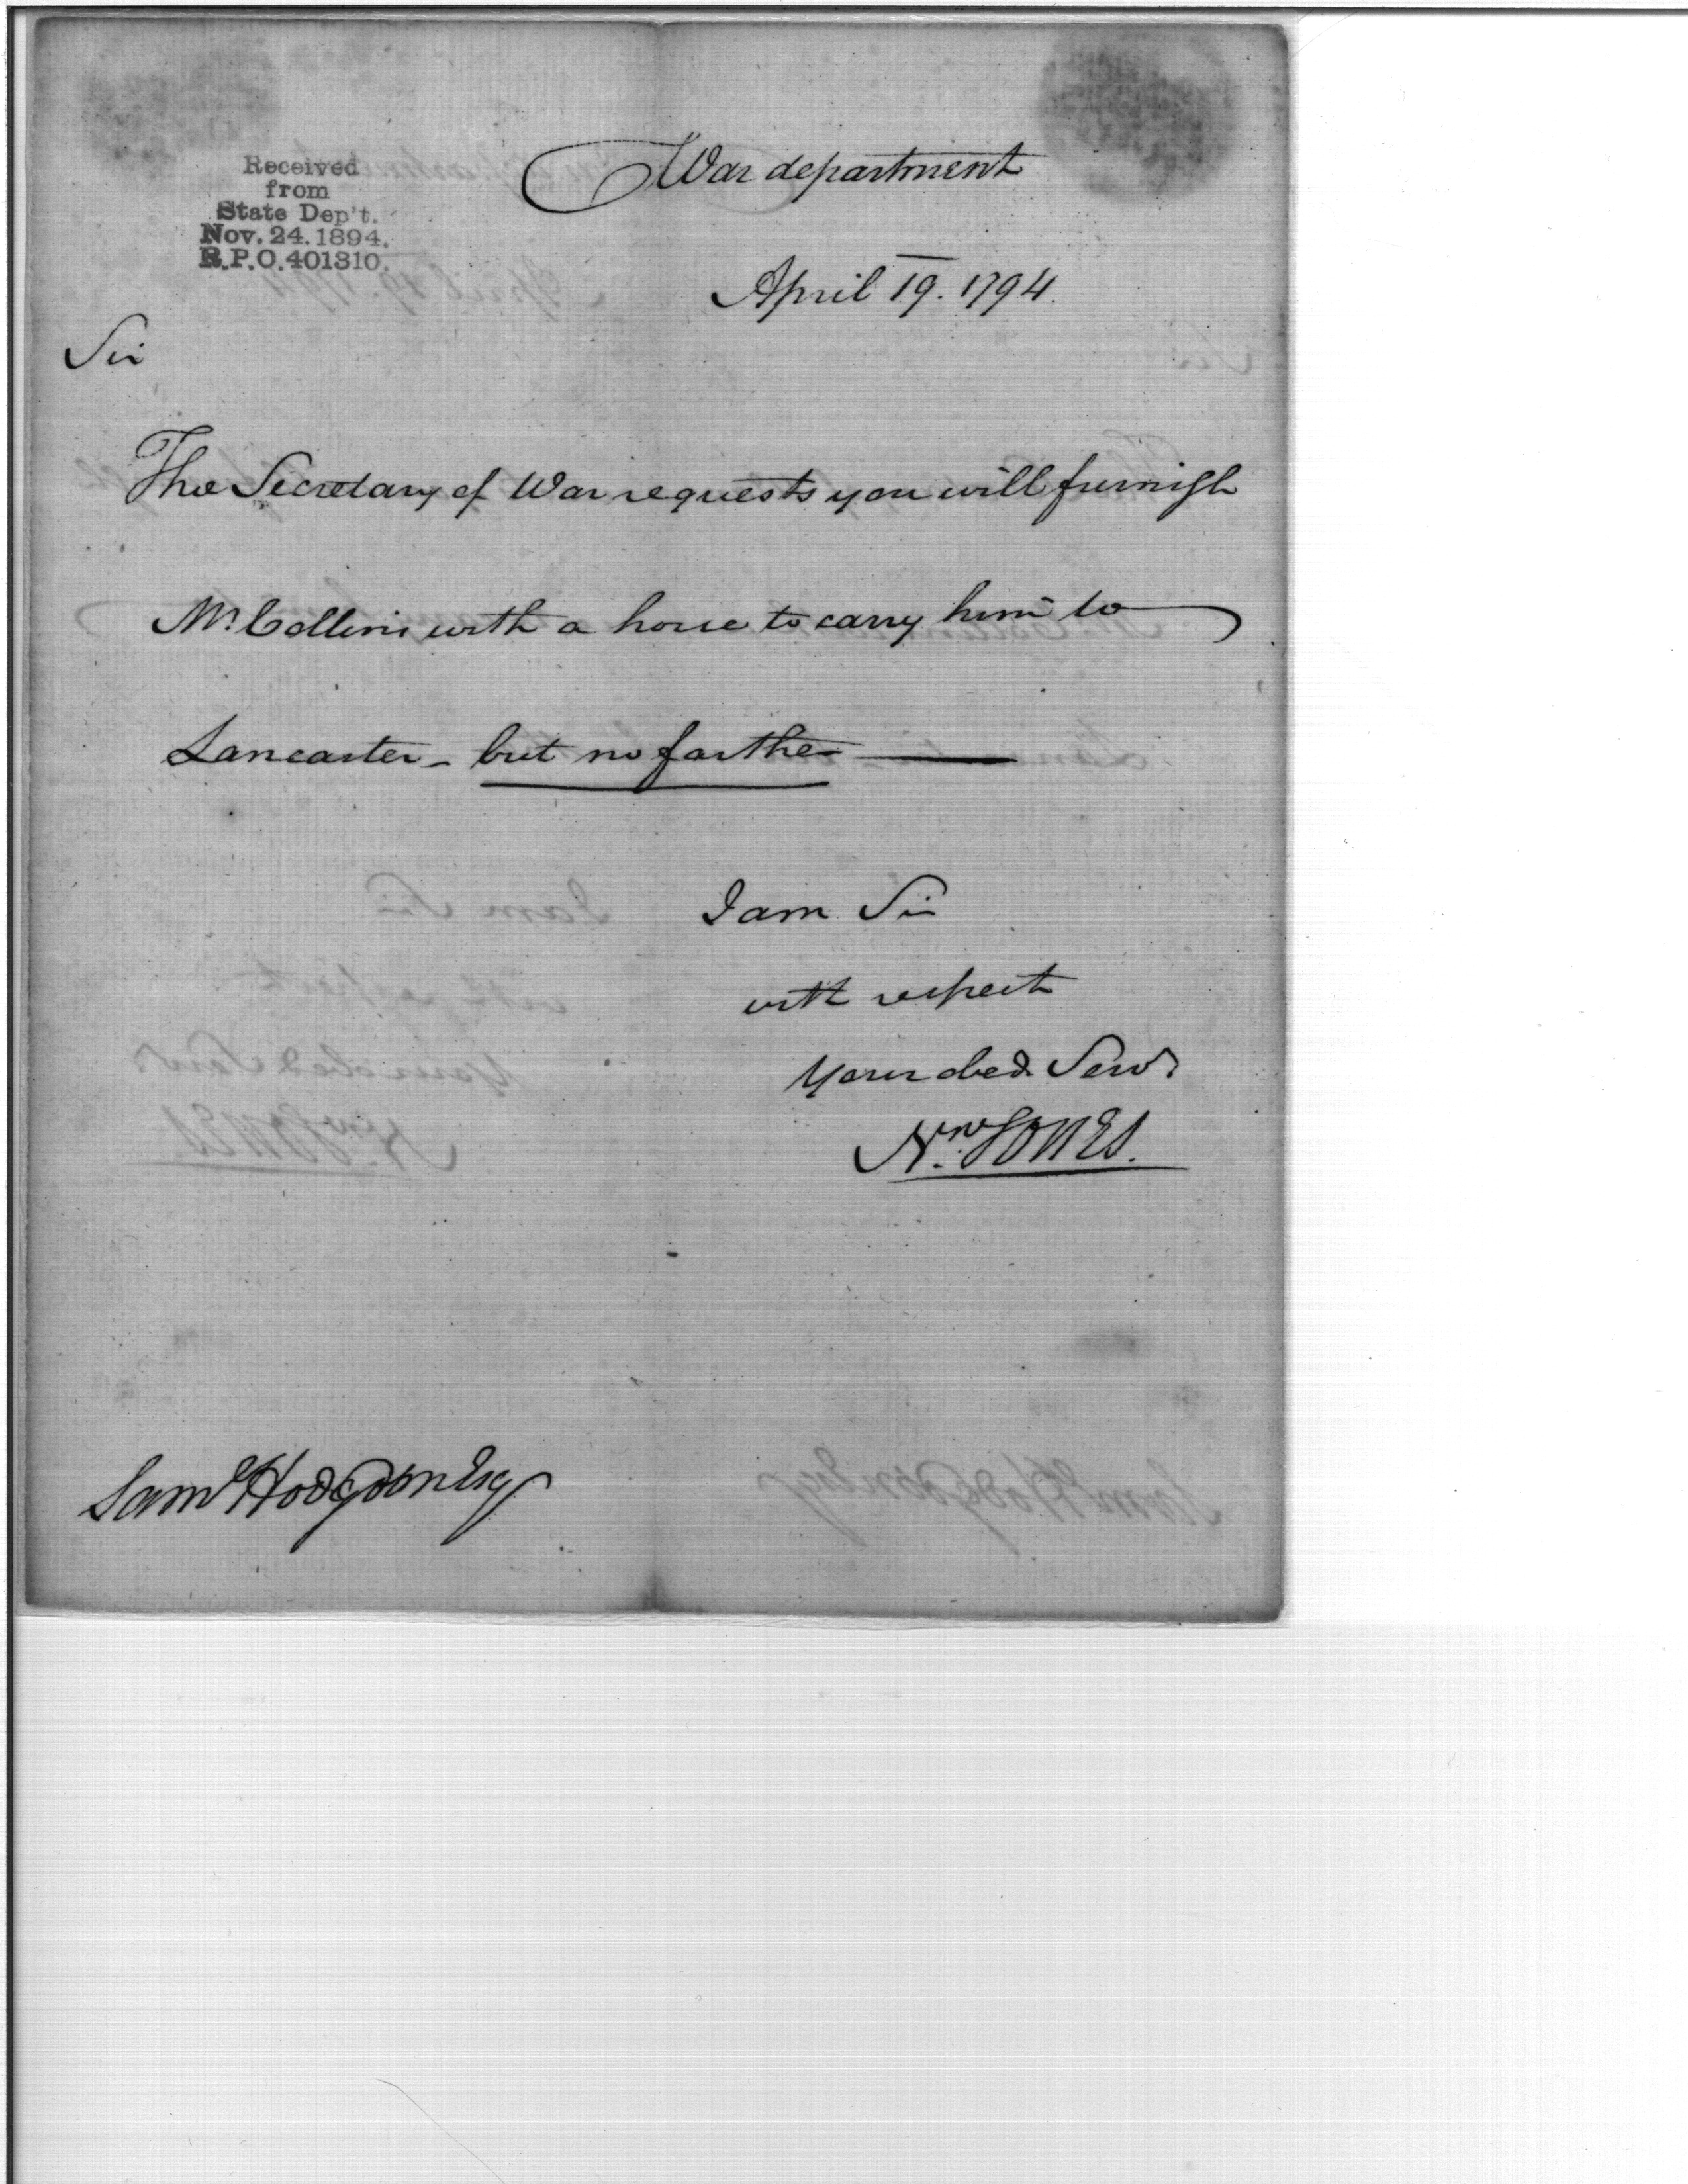 War department
Received
from
State Dep't.
Nov. 24. 1894.
R.P.O. 401310.
April 19. 1794.
Sir
The Secretary of War requests you will furnish
Mr. Collins with a horse to carry him to
Lancaster - but no farther
I am Sir
with respect
Your obed. Servt
Nn. JONES.
Saml Hodgdon Esq